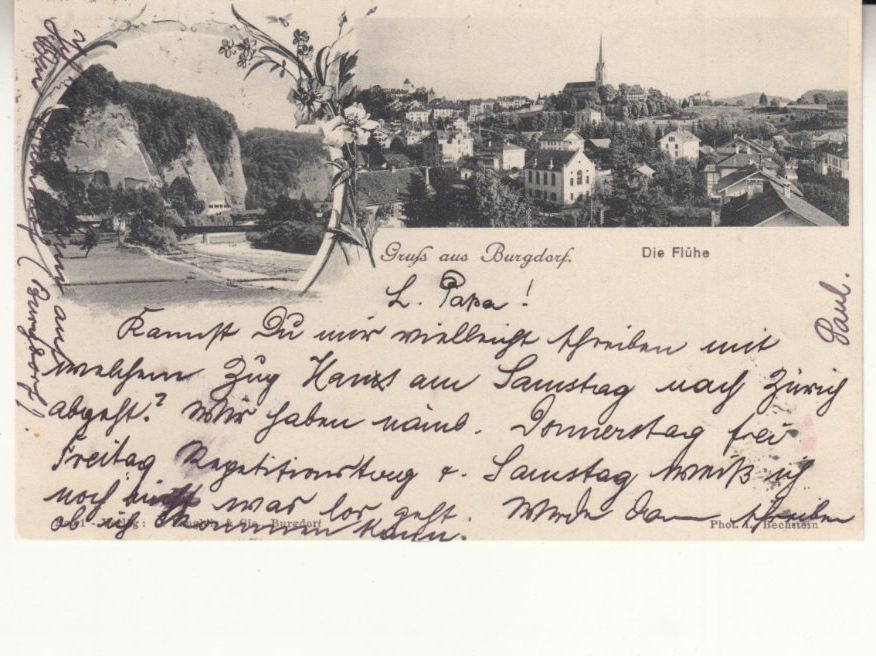 Gruß aus Burgdorf.
Die Flühe
L. Papa!
Kannst Du mir vielleicht schreiben mit
welchem Zug Hans am Samstag nach Zürich
abgeht? Wir haben näml. Donnerstag frei
Freitag Repetitionstag & Samstag weiß ich
noch nicht was los geht. Werde dann schreiben
ob ich kommen kann.
Paul.
Burgdorf
Phot. L. Bechstein